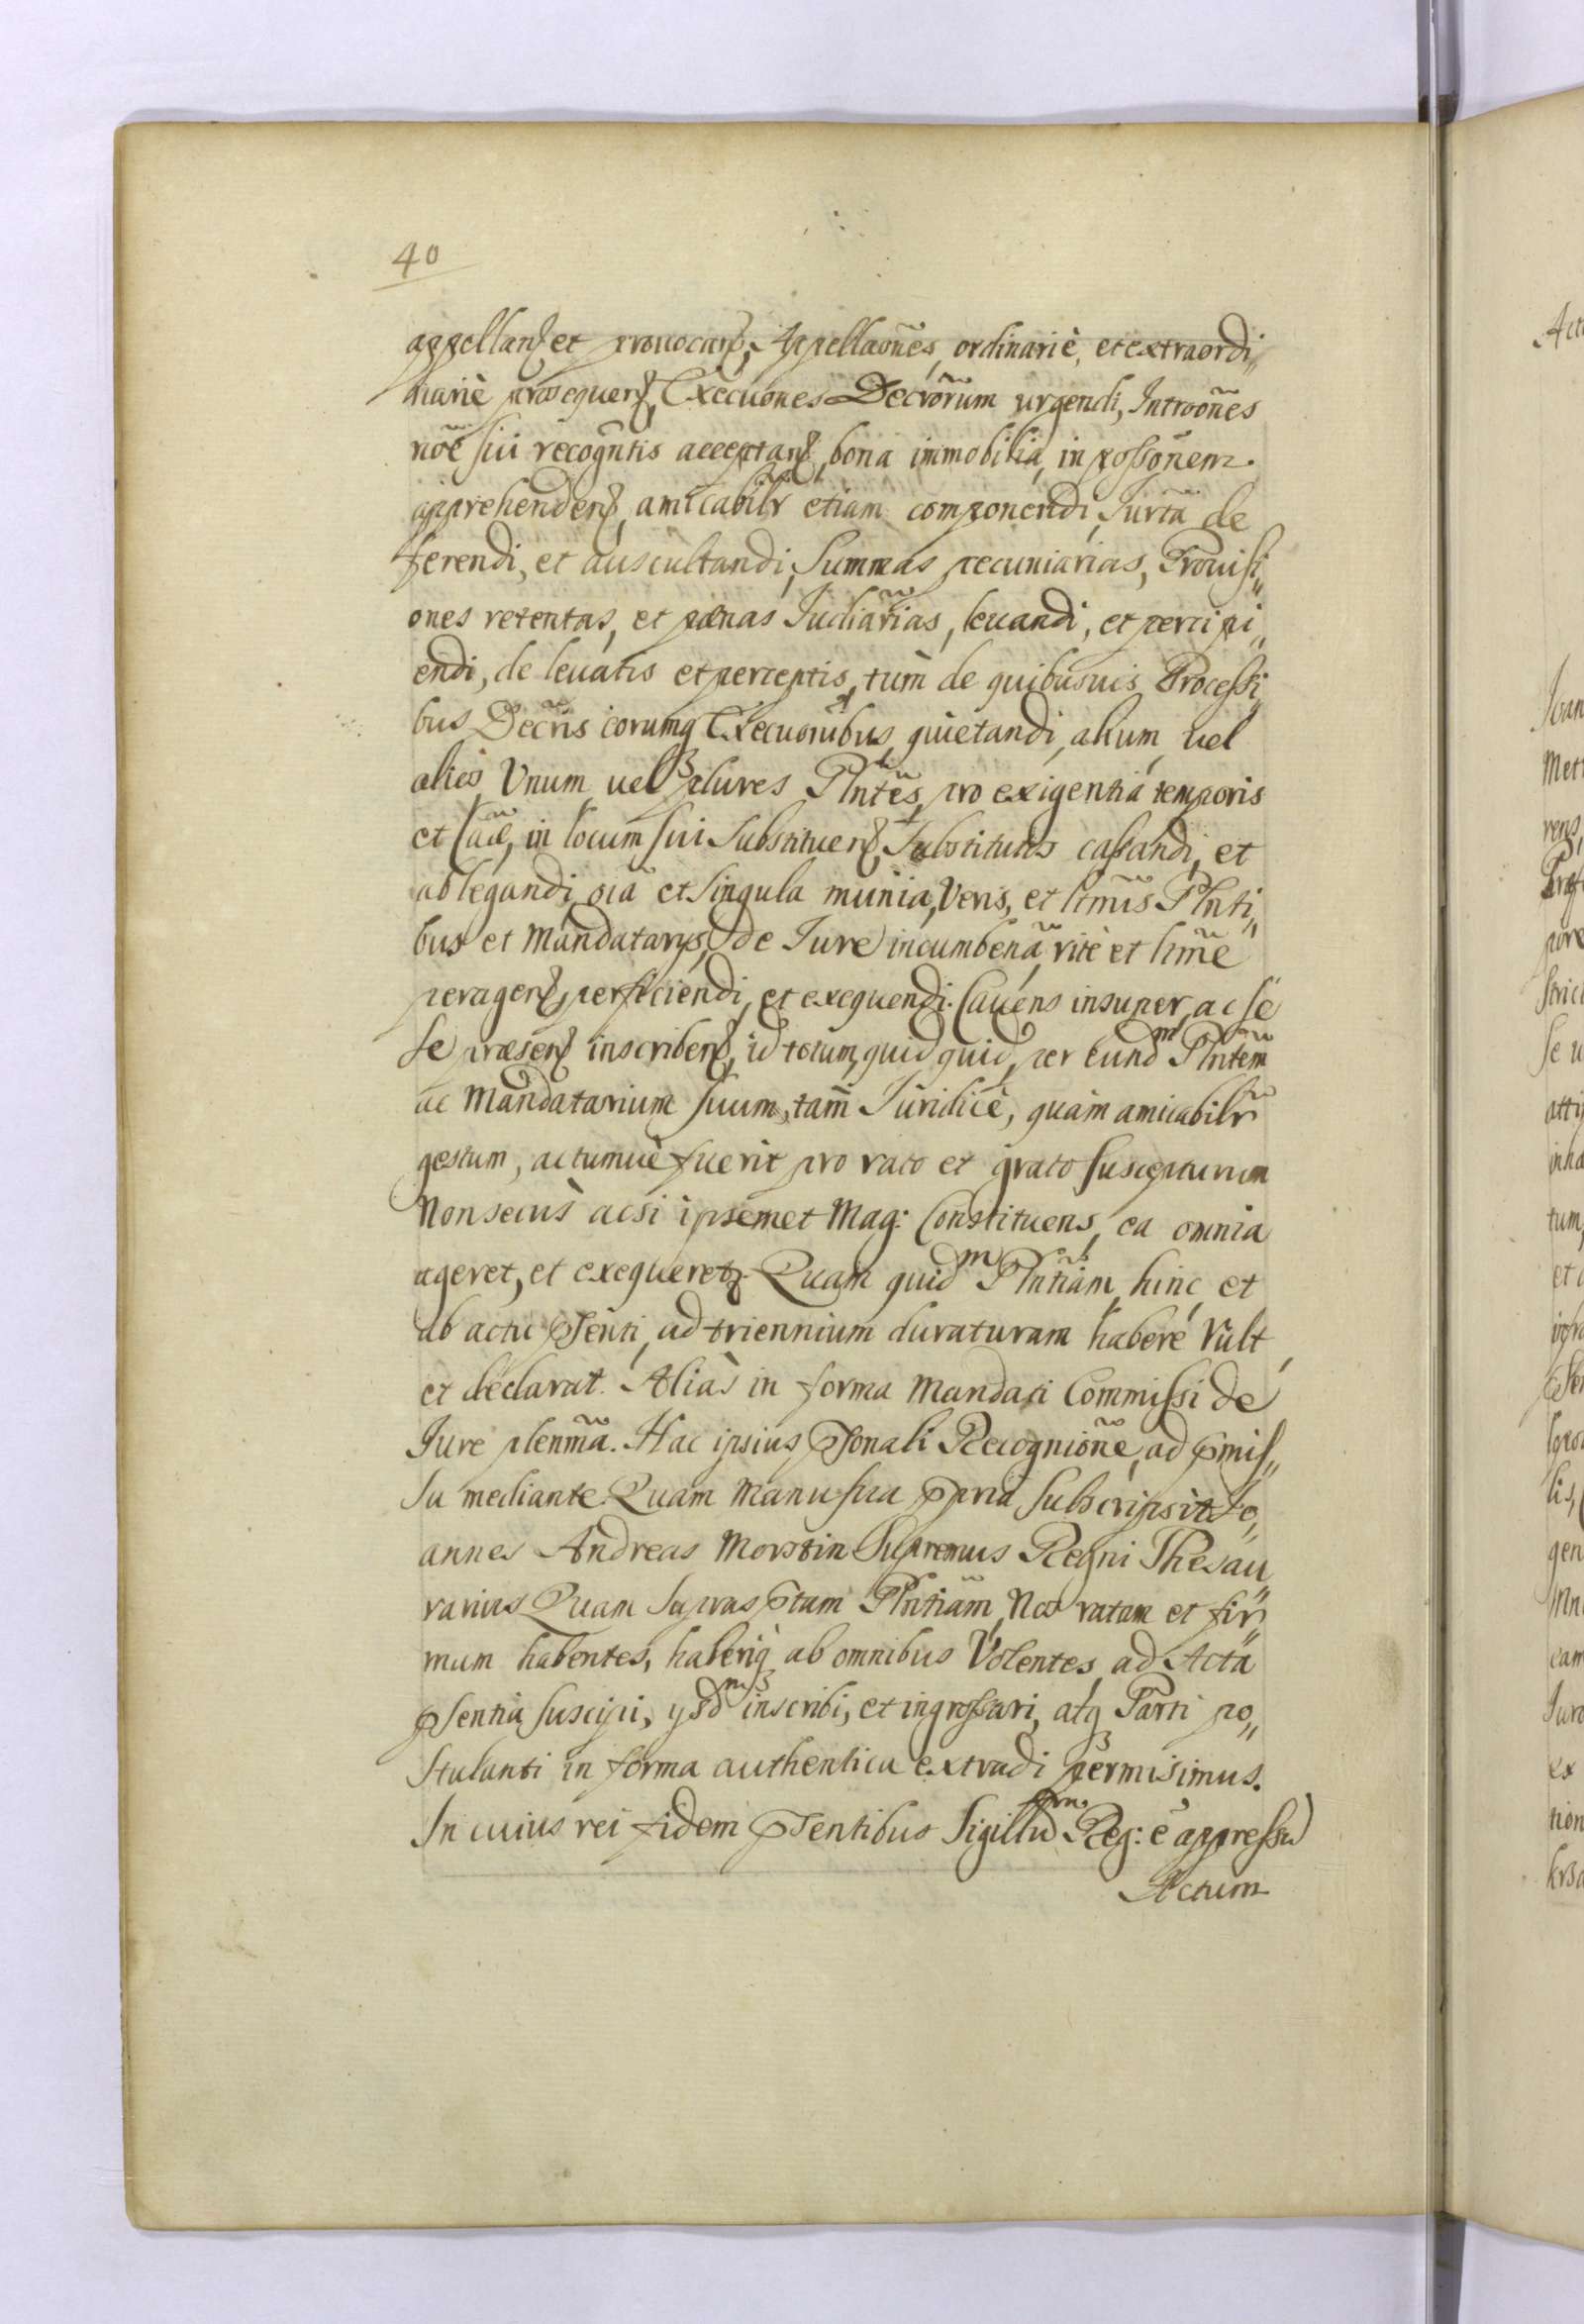 40
appellan͠d et prouocan͠d, Appellaõnes, ordinariè, et extraordi„
nariè prosequen͠d, Execuones Decrõrum urgendi, Introõnes
nõe sui recogñtis acceptan͠d, bona immobilia, in possõnem
apprehenden͠d, amicabilr̃ etiam componendi, Jurta de
ferendi, et auscultandi, Summas pecuniarias, Prouisi„
ones retentas, et pænas Judiãrias, leuandi, et percipi„
endi, de leuatis et perceptis, tùm de quibusuis Processi„
bus Decr̃is eorumq Execuonibus, quietandi, alium, uel
alios, Vnum uel plures Plñtes, pro exigentia temporis
et Cãæ, in locum sui Substituen͠d, Substitutos cassandi, et
ablegandi, oiã et singula munia, Veris, et ltm̃is Plnti„
bus et Mandatarys, de Jure incumbeña, ritè et ltm̃e
peragen͠d, perficiendi, et exequendi. Cauens insuper, ac se
se præsen͠d inscriben͠d, id totum, quid quid, per Eundm Plñtem
ac Mandatarium suum, tam̃ Juridicè, quàm amicabilr̃
gestum, actumuè fuerit pro rato et grato suscepturum
Non secus acsi ipsemet Mag: Constituens, ea omnia
ageret, et exequeretr Quam quidm Plñtiam, hinc et
ab actu pñti, ad triennium duraturam habere Vult,
et declarat. Aliàs in forma Mandati Commissi de
Jure plenm̃a. Hac ipsius psonali Recogniõne, ad pmis„
sa mediante. Quam Manu sua ppria subscripsit Jo„
annes Andreas Morstin Supremus Regni Thesau„
rarius Quam suprasptam Plñtiam, Nos ratam et fir„
mum habentes, haberiq ab omnibus Volentes, ad Acta
psentia suscipi, ysdm inscribi, et ingrossari, atq Parti po„
stulanti in forma authentica extradi permisimus.
In cuius rei fidem psentibus Sigillum Reg: ẽ appressu
Actum